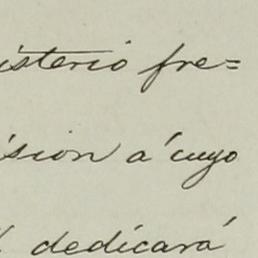 isterio fre=
ision a' cuyo
dedicará